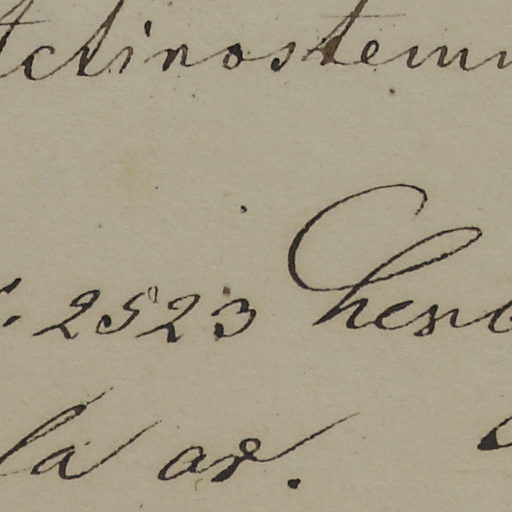 ctinostemm
2523 Chen
la ar.